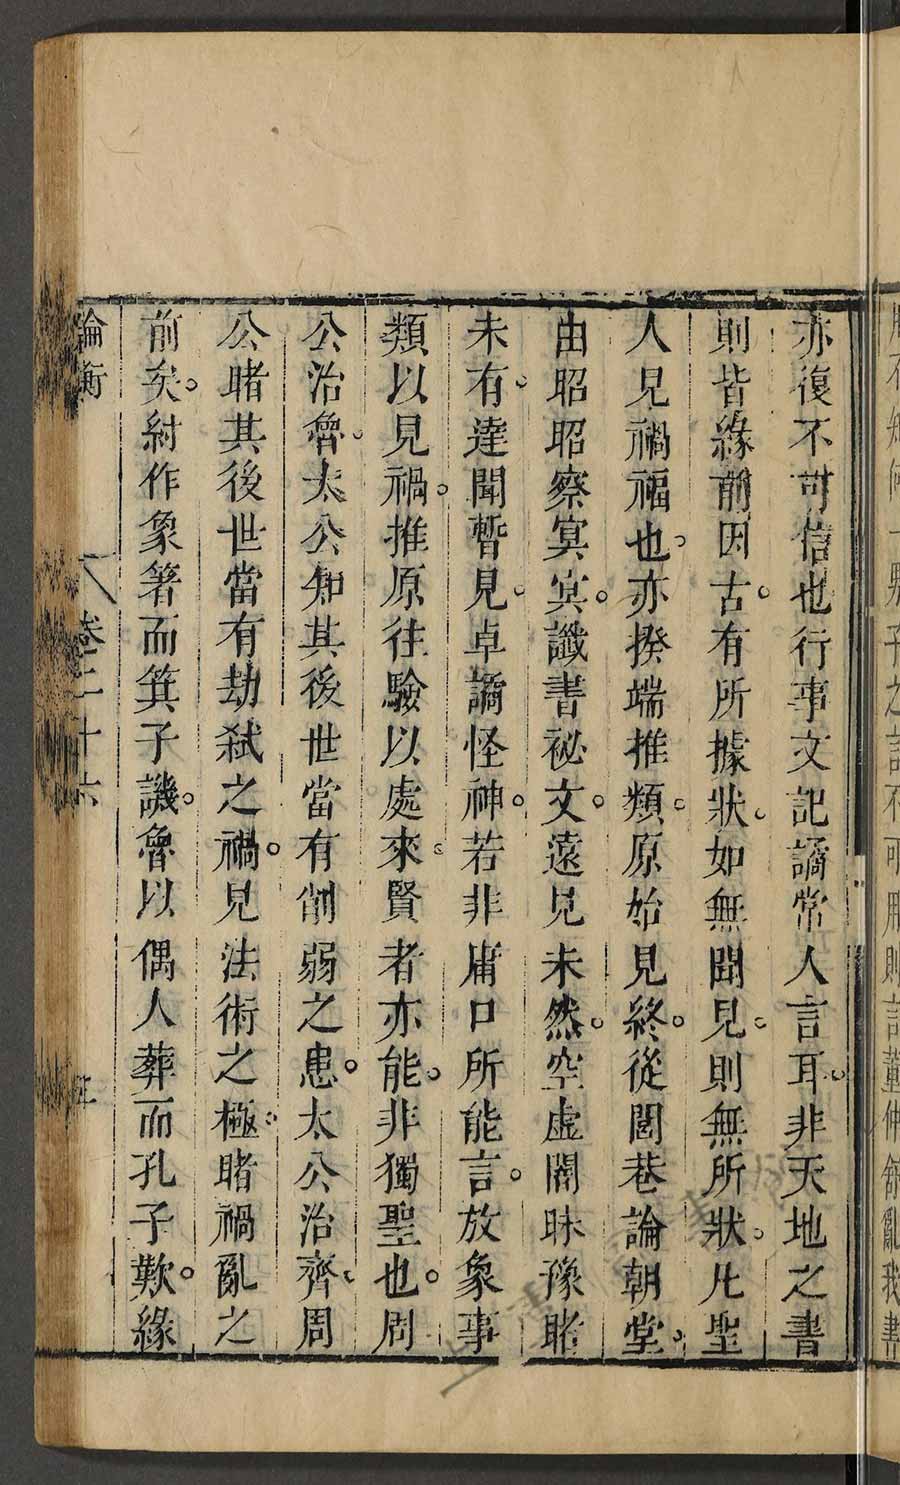 亦復不可信也行事文記譎常人言耳。非天地之書
則皆緣前因古。有所據狀。如無聞見。則無所狀。凡聖
人見禍福也。亦揆端推類。原始見終。從閭巷論朝堂。
由昭昭察冥冥。讖書祕文。遠見未然。空虛闇昧豫睹
未有。達聞暫見。卓譎怪神。若非庸口所能言。放象事
類以見禍。推原往驗以處來。賢者亦能。非獨聖也。周
公治魯。太公知其後世當有削弱之患。太公治齊。周
公睹其後世當有劫弒之禍。見法術之極。睹禍亂之
前矣。紂作象箸而箕子譏。魯以偶人葬而孔子歎。緣
論衡 卷二十六